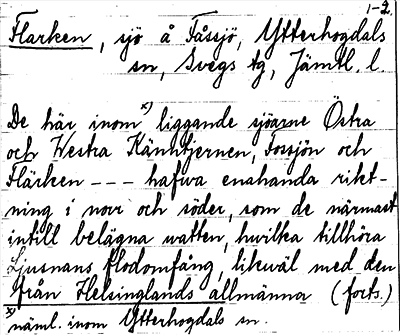 1-2.
Flarken, sjö å Fåssjö, Ytterhogdals
sn, Svegs tg, Jämtl. l.
De här inom x) liggande sjöarne Östra
och Westra Känhtjernen, Fossjön och
Flärken --- hafwa enahanda rikt-
ning i norr och söder, som de närmast
intill belägna watten, hwilka tillhöra
Ljusnans flodomfång, likwäl med den
från Helsinglands allmänna (forts.)
x) näml. inom Ytterhogdals sn.